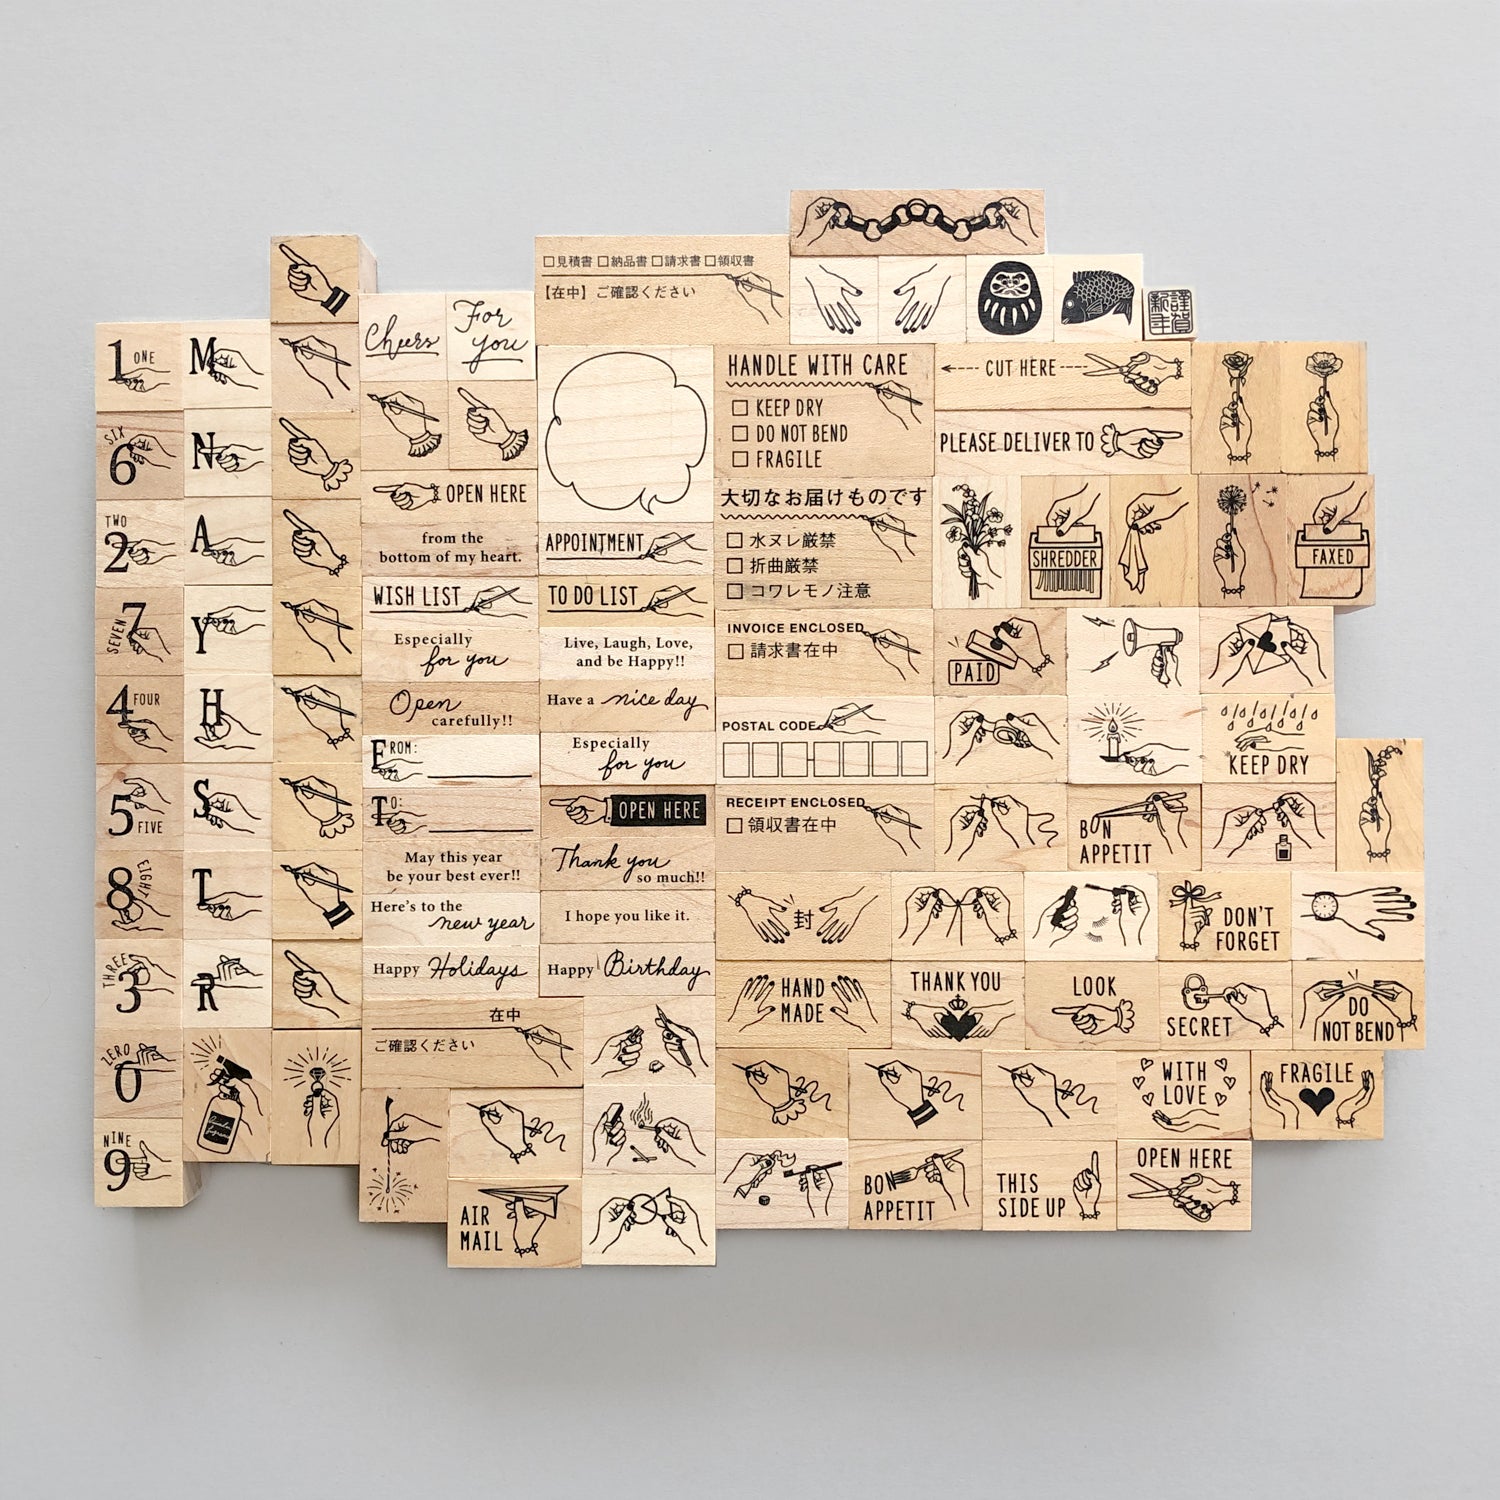 1 ONE
SIX
6
TWO
2
SEVEN
7
4 FOUR
5
FIVE
8 EIGHT
THREE
3
ZERO
0
NINE
9
M
N
A
Y
H
S
T
R
Cheers
For
you
OPEN HERE
from the
bottom of my heart.
WISH LIST
Especially
for you
Open
carefully!!
FROM:
TO:
May this year
be your best ever!!
Here's to the
new year
Happy Holidays
在中
ご確認ください
AIR
MAIL
□見積書 □納品書 □請求書 □領収書
【在中】ご確認ください
APPOINTMENT
TO DO LIST
Live, Laugh, Love,
and be Happy!!
Have a nice day
Especially
for you
OPEN HERE
Thank you
so much!!
I hope you like it.
Happy Birthday
HANDLE WITH CARE
□ KEEP DRY
□ DO NOT BEND
□ FRAGILE
大切なお届けものです
□ 水ヌレ厳禁
□ 折曲厳禁
□ コワレモノ注意
INVOICE ENCLOSED
□ 請求書在中
POSTAL CODE
RECEIPT ENCLOSED
□ 領収書在中
謹賀
新年
CUT HERE
PLEASE DELIVER TO
SHREDDER
FAXED
PAID
KEEP DRY
BON
APPETIT
封
DON'T
FORGET
HAND
MADE
THANK YOU
LOOK
SECRET
DO
NOT BEND
WITH
LOVE
FRAGILE
BON
APPETIT
THIS
SIDE UP
OPEN HERE